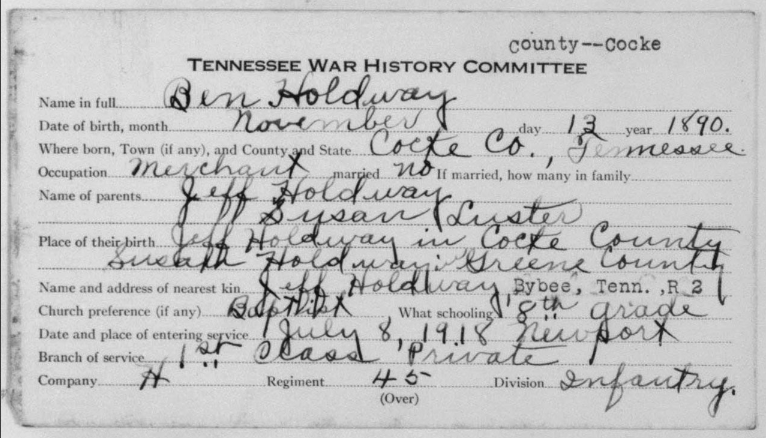 County--Cocke
TENNESSEE WAR HISTORY COMMITTEE
Name in full Ben Holdway
Date of birth, month November day 13 year 1890.
Where born, Town (if any), and County and State Cocke Co., Tennessee.
Occupation Merchant married no If married, how many in family
Name of parents Jeff Holdway
Susan Luster
Place of their birth Jeff Holdway in Cocke County
Susan Holdway in Greene County
Name and address of nearest kin Jeff Holdway Bybee, Tenn. ,R 2
Church preference (if any) Baptist What schooling 8th grade
Date and place of entering service July 8, 1918 Newport
Branch of service 1st Class Private
Company H Regiment 45 Division Infantry.
(Over)